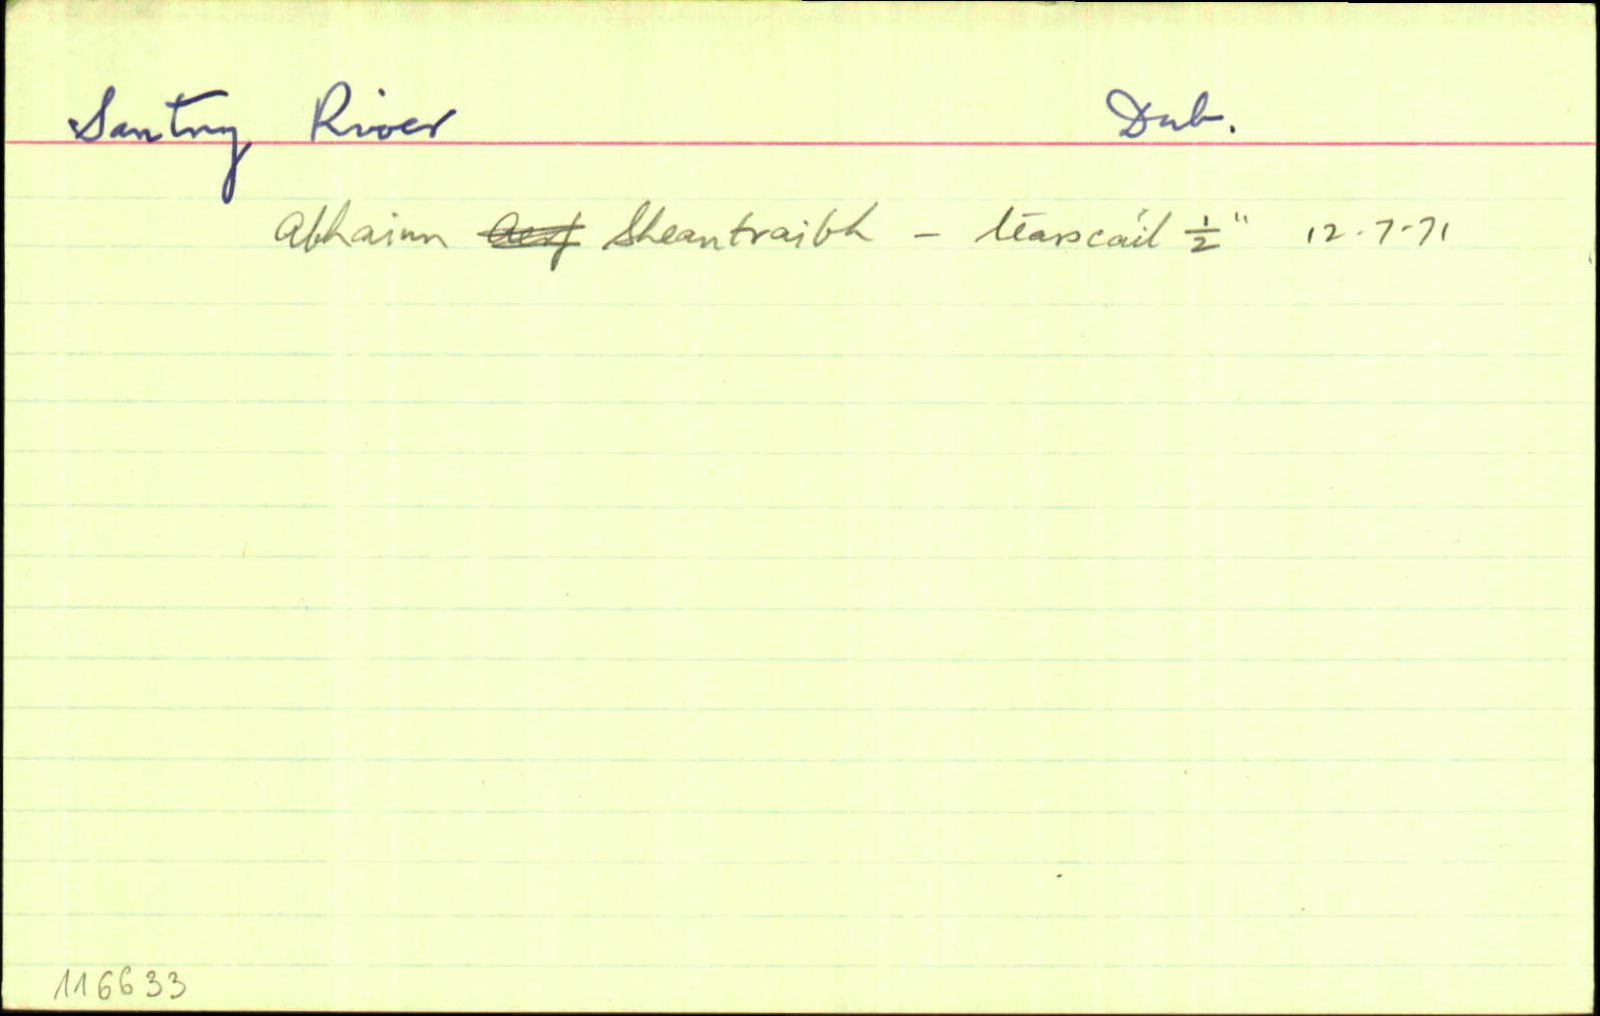 Santry River Dub.
Abhainn Sheantraibh – léarscáil ½" 12-7-71
116633